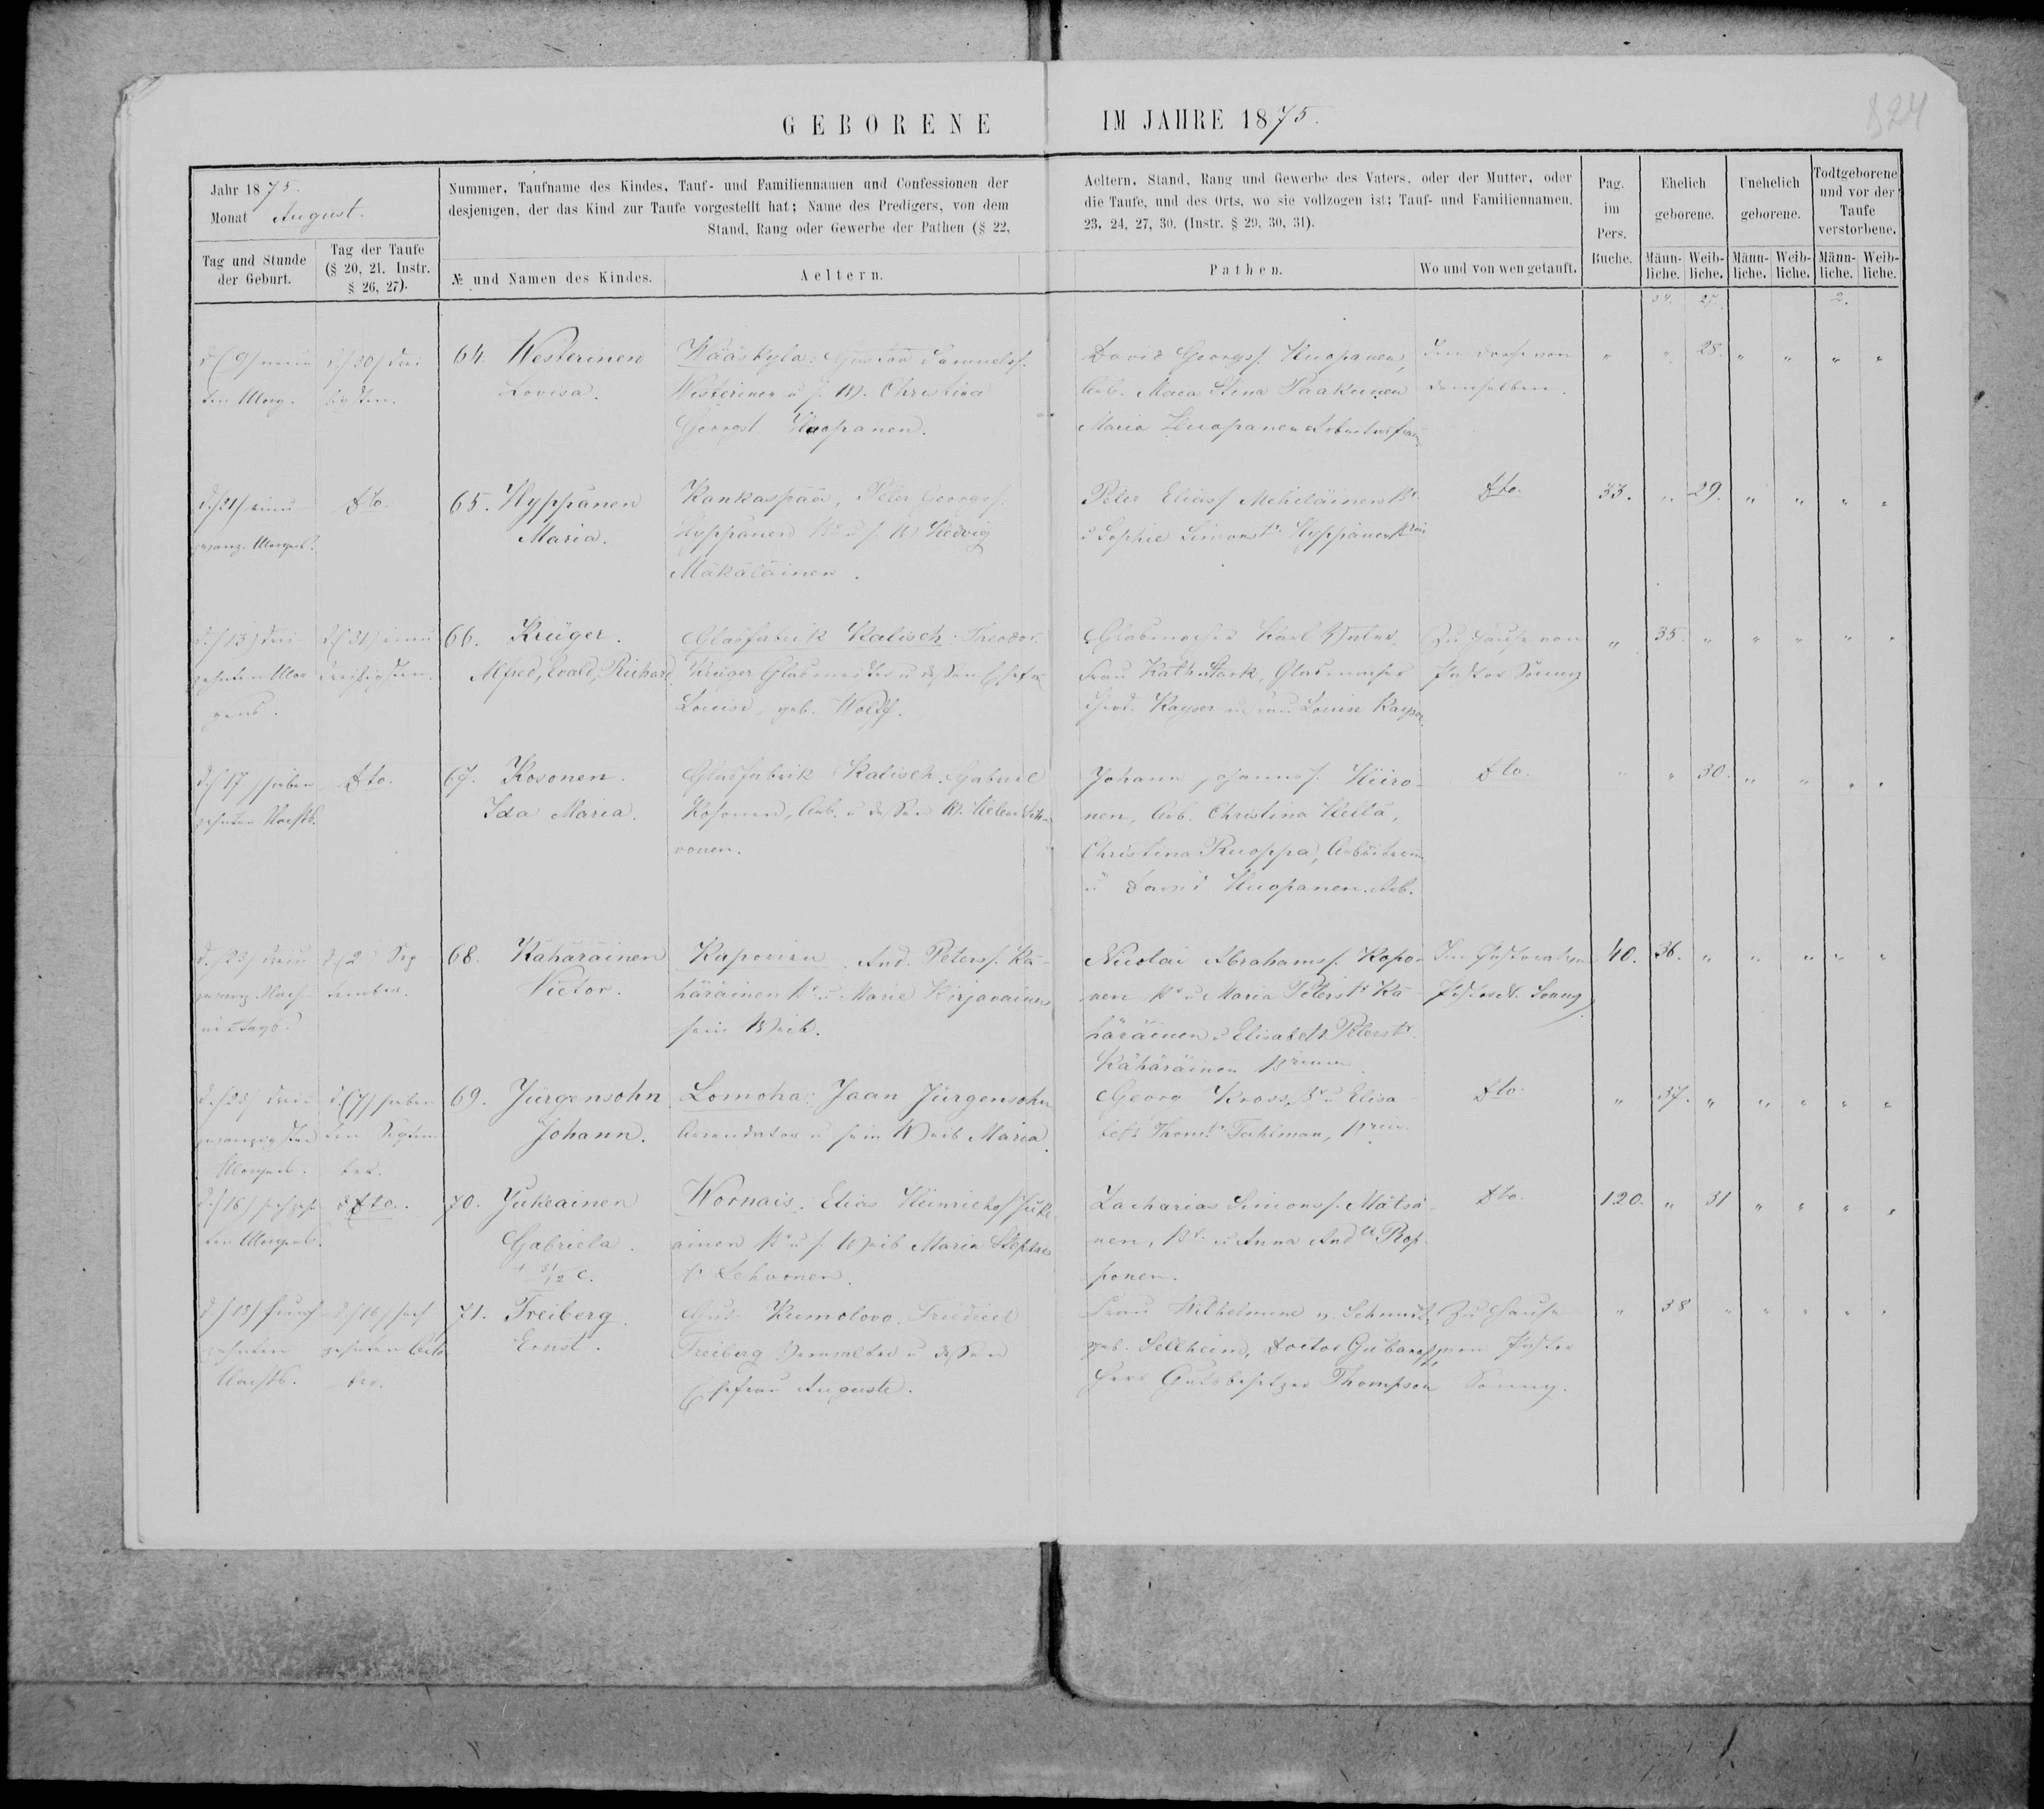 GEBORENE IM JAHRE 1875.
824
Jahr 1875.
Monat August.
Nummer, Taufname des Kindes, Tauf- und Familiennamen und Confessionen der
desjenigen, der das Kind zur Taufe vorgestellt hat; Name des Predigers, von dem
Stand, Rang oder Gewerbe der Pathen (§ 22,
Aeltern, Stand, Rang und Gewerbe des Vaters, oder der Mutter, oder
die Taufe, und des Orts, wo sie vollzogen ist; Tauf- und Familiennamen,
23, 24, 27, 30. (Instr. § 29, 30, 31).
Pag.
im
Pers.
Buche.
Ehelich
geborene.
Unehelich
geborene.
Todtgeborene
und vor der
Taufe
verstorbene.
Tag und Stunde
der Geburt.
Tag der Taufe
(§ 20, 21. Instr.
§ 26, 27).
№ und Namen des Kindes.
Aeltern.
Pathen.
Wo und von wen getauft.
Männ-
liche.
Weib-
liche.
Männ-
liche.
Weib-
liche.
Männ-
liche.
Weib-
liche.
34. 27. 2.
d. (9) neun
ten Morg.
d. (30) drei
sigsten.
64. Westerinen
Lovisa.
Wääskyla: Gustav Samuels.
Westerinen u. s. W. Christina
Georgst. Huopanen.
David Georgs. Huopanen,
Arb. Maria Stina Paakunen
Maria Huopanen
demselben.
" " 28. " " " "
d. (21) einu
zwanz. Morgens.
Dto.
65. Hyppänen
Maria.
Kankaspää, Peter Georgs.
Hyppänen Br u. s. W. Hedvig
Mäkäläinen.
Peter Elias. Meheläinen Br
u. Sophie Simonst. Hyppänen
Dto.
33. " 29. " " " "
d. (13) drei
zehnten Mor
gens.
d. (31) einu
dreisigsten.
66. Krüger.
Alfred, Evald, Richard.
Glasfabrik Kalisch: Theodor
Krüger Glasmeister u. dessen Ehefr.
Louise, geb. Wolff.
Glasmacher Karl
Frau Kath. Stark, Glasmacher
Kayser u. Louise Kayser
Zu Hause von
Pastor Sonny
" 35. " " " " "
d. (17) sieben
zehnten Nachts.
Dto.
67. Kosonen.
Ida Maria.
Glasfabrik Kalisch. Gabriel
Kosonen, Arb. u. dessen W. Helena
vonen.
Johann Johanns. Hiiro-
nen, Arb. Christina Hella,
Christina Ruoppa, Arbeiterin
u. David Huopanen Arb.
Dto.
" " 30. " " " "
d. (23) drei u
zwanz. Nach-
mittags.
d. (2) Sep
tember.
68. Kähäräinen
Victor.
Kaporien And. Peters. Kä-
häräinen Br u. Marie Kirjavainen
sein Weib.
Nicolai Abrahams. Kopo-
nen Br u. Maria Peterst. Kä-
häräinen u. Elisabeth Peterstr.
Kähäräinen
Im Pastorat von
Pastor A. Sonny
40. 36. " " " " "
d. (23) drei u
zwanzigsten
Morgens.
d. (7) sieben
ten Septem
ber.
69. Jürgensohn
Johann.
Lomoha: Jaan Jürgensohn
Arrendator u. sein Weib Maria.
Georg Kross, Br u. Elisa-
beth Thomtr. Tahlman,
Dto.
" 37. " " " " "
d. (16) sechzehn
ten Morgens.
Dto.
70. Jukeainen
Gabriela.
Wornais. Elias Heinrichs Juke-
ainen Br u. s. Weib Maria
Lehvonen.
Zacharias Simons. Mätsä-
nen, Br. u. Anna And. Rop-
ponen.
Dto.
120. " 31 " " " "
d. (15) funf
zehnten
Nachts.
d. (16) sech
zehnten Octo
ber.
71. Freiberg.
Ernst.
Kumolovo. Friedrich
Freiberg Verwalter u. dessen
Ehefrau Auguste.
Frau Wilhelmine v. Schmidt
geb. Sellheim, Doctor Gubaroff,
Herr Gutsbesitzer Thompson
Zu Hause
von Pastor
Sonny.
" 38 " " " " "